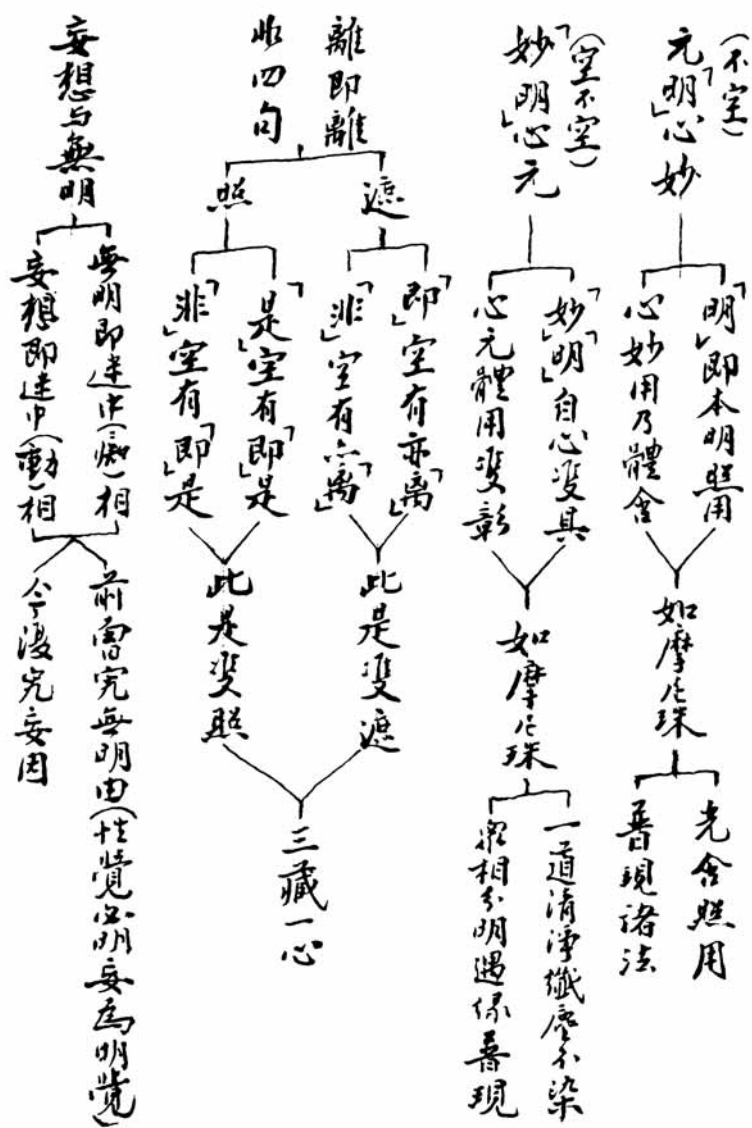 (不空)
元「明」心妙
「明」即本明照用
心妙用乃體含
如摩尼珠
光含照用
普現諸法
(空不空)
妙「明」心元
「妙」「明」自心雙具
心元體用雙彰
如摩尼珠
一道清淨纖塵不染
眾相分明遇緣普現
離即離
非四句
遮
「即」空有亦「离」
「非」空有亦「离」
此是雙遮
照
「是」空有「即」是
「非」空有「即」是
此是雙照
三藏一心
妄想与無明
無明即迷中(痴)相
妄想即迷中(動)相
前曾究無明由(性覺必明妄為明覺)
今復究妄因